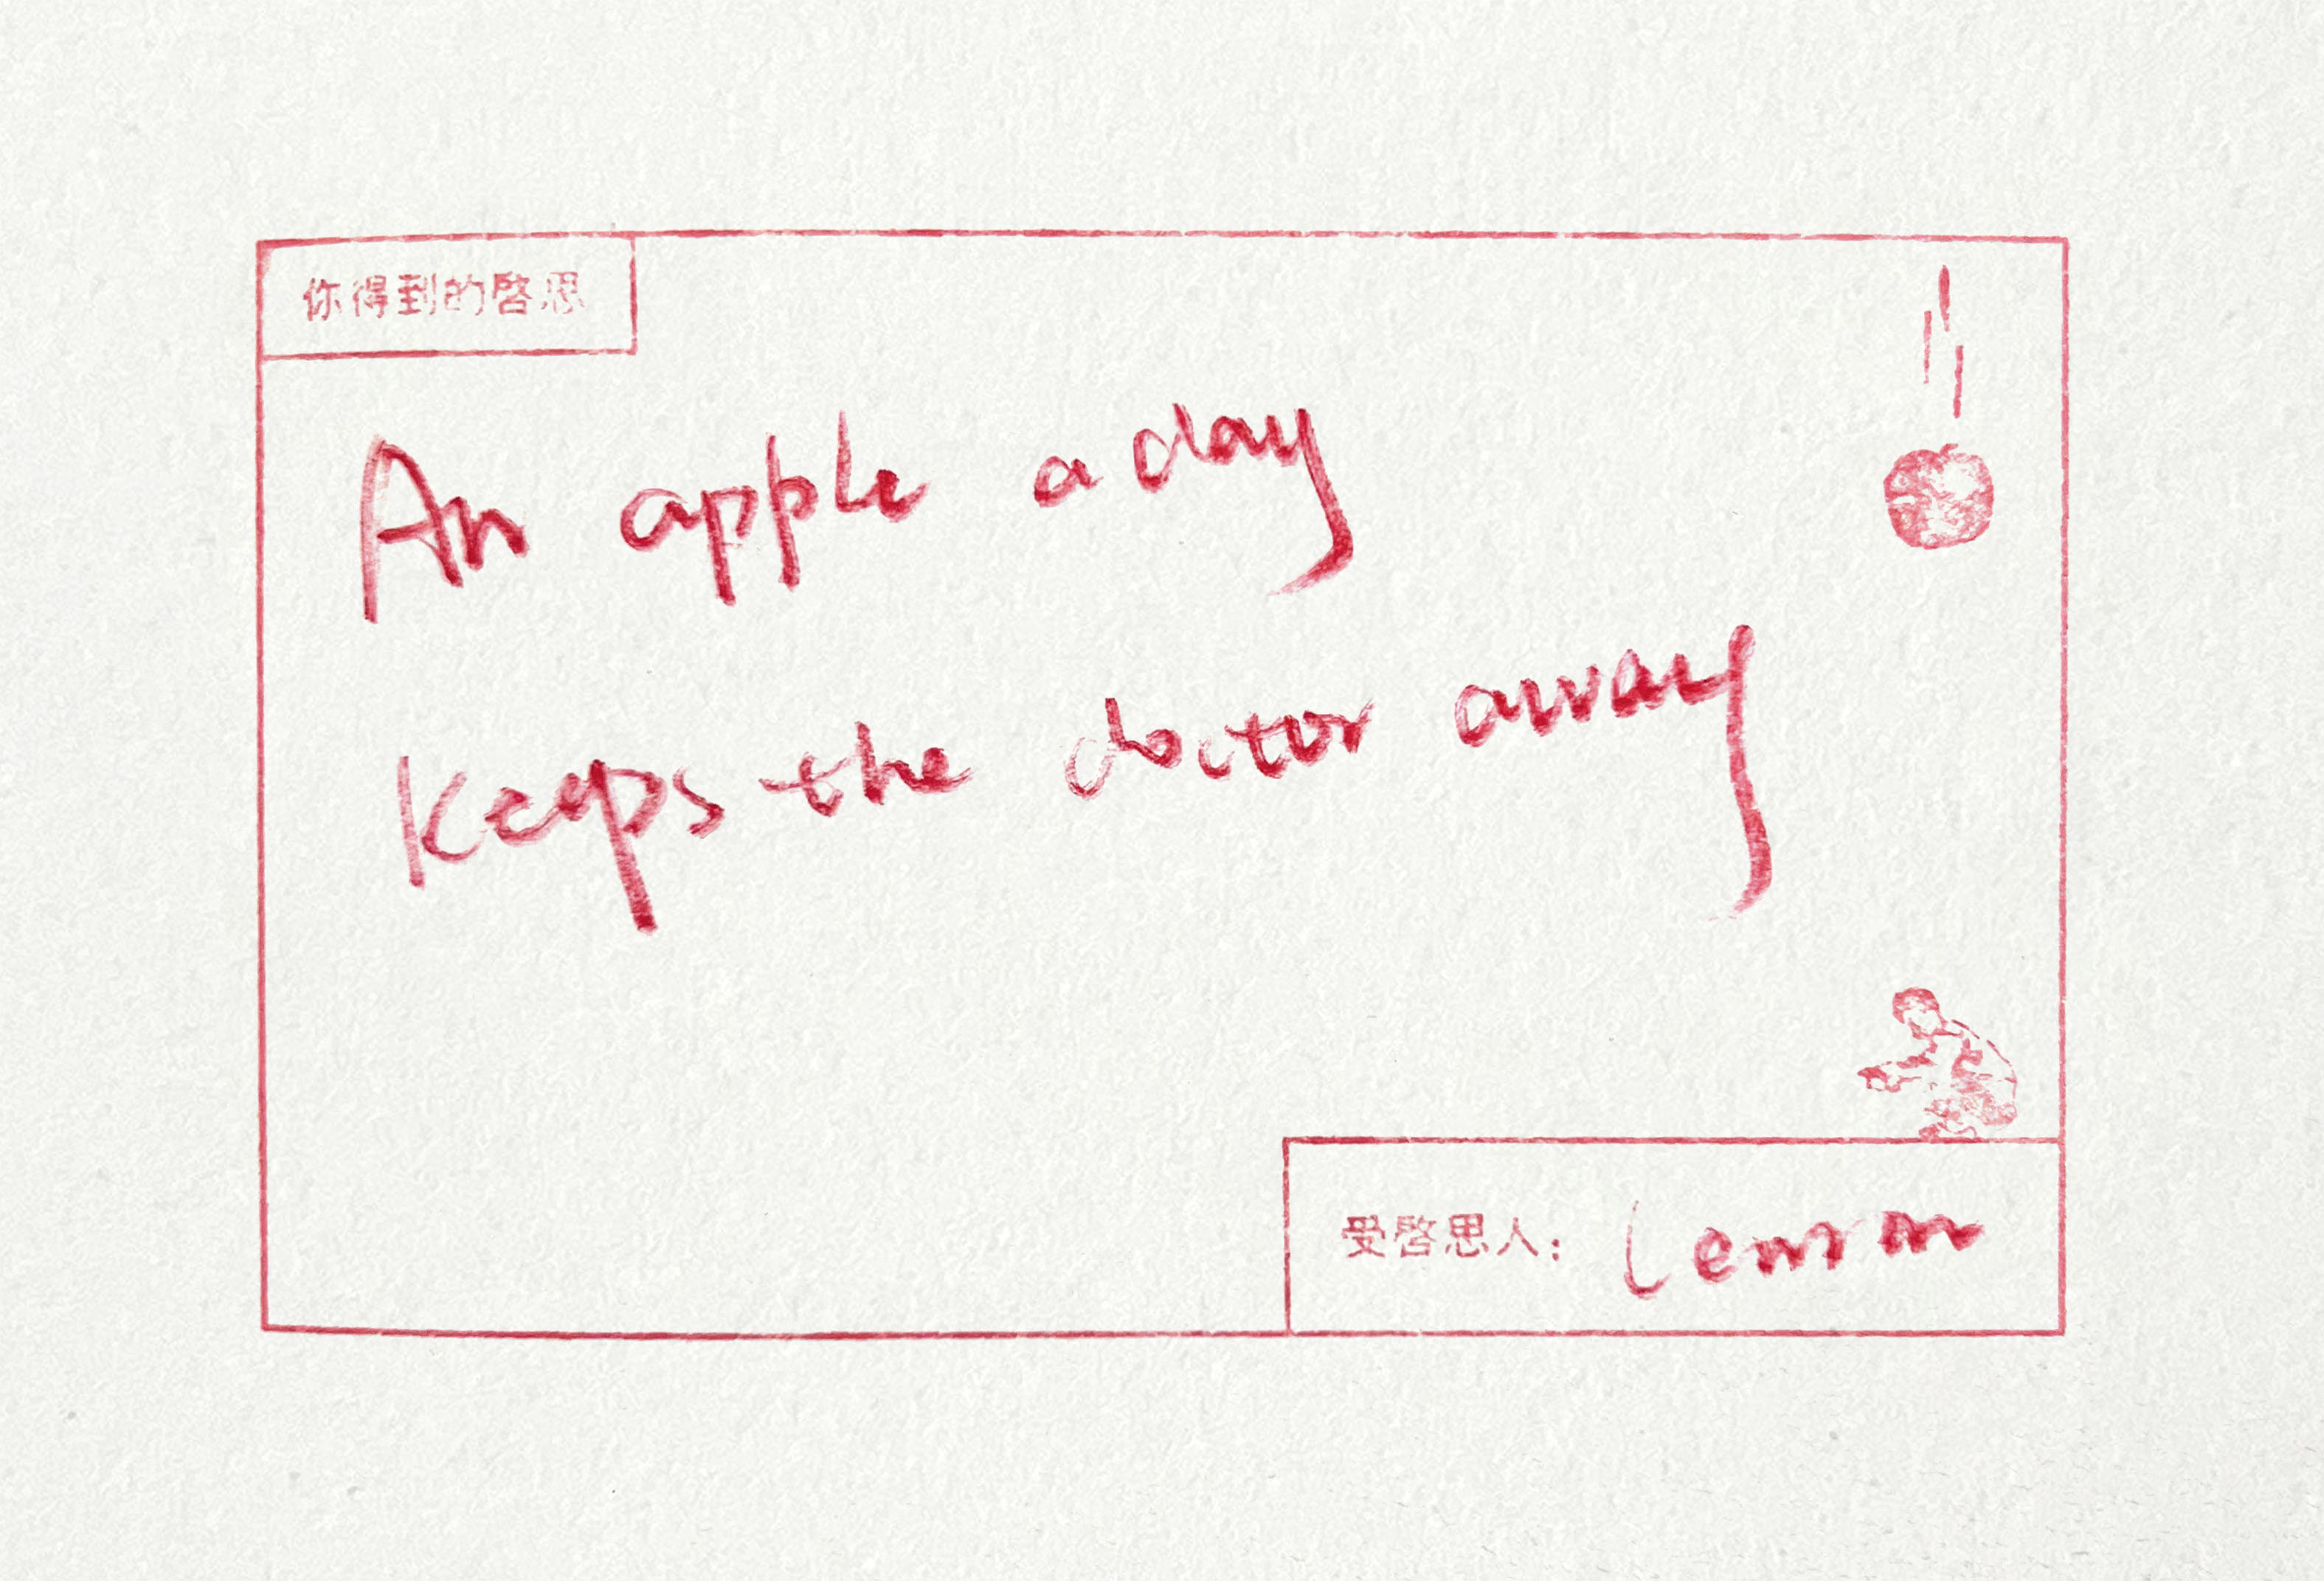 你得到的啓思
An apple a day
Keeps the doctor away
受啓思人：